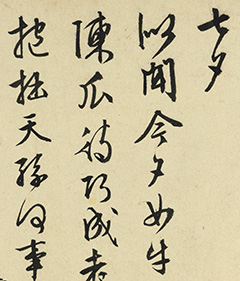 七夕
似聞今夕女牛
陳瓜待巧成
抱拙天孫何事